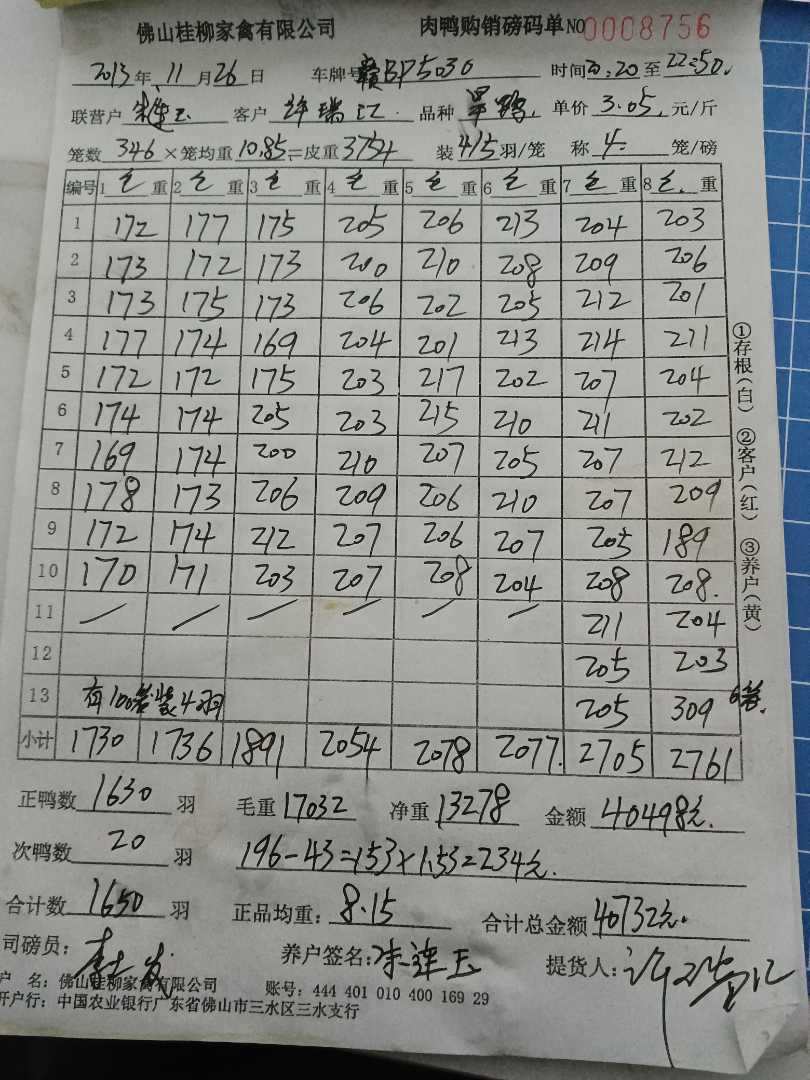 佛山桂柳家禽有限公司 肉鸭购销磅码单 NO 0008756
2013年 11月26日 车牌号 赣BP5030 时间20:20至22:50.
联营户 客户 许瑞江 品种 单价 3.05 元/斤
笼数 346 ×笼均重 10.85 =皮重 3754 装 4/5 羽/笼 称 4 笼/磅
编号 1 毛 重 2 毛 重 3 毛 重 4 毛 重 5 毛 重 6 毛 重 7 毛 重 8 毛 重
1 172 177 175 205 206 213 204 203
2 173 172 173 200 210 208 209 206
3 173 175 173 206 202 205 212 201
4 177 174 169 204 201 213 214 211
5 172 172 175 203 217 202 207 204
6 174 174 205 203 215 210 211 202
7 169 174 200 210 207 205 207 212
8 178 173 206 209 206 210 207 209
9 172 174 212 207 206 207 205 189
10 170 171 203 207 208 204 208 208.
11 / / / / / / 211 204
12 205 203
13 有100笼装4羽 205 309 6笼.
小计 1730 1736 1891 2054 2078 2077. 2705 2761
正鸭数 1630 羽 毛重 17032 净重 13278 金额 40498元.
次鸭数 20 羽 196-43=153×1.53=234元.
合计数 1650 羽 正品均重: 8.15 合计总金额 40732元.
司磅员: 养户签名: 朱连玉 提货人: 许瑞江
户 名: 佛山桂柳家禽有限公司 账号: 444 401 010 400 169 29
开户行: 中国农业银行广东省佛山市三水区三水支行
①存根(白) ②客户(红) ③养户(黄)